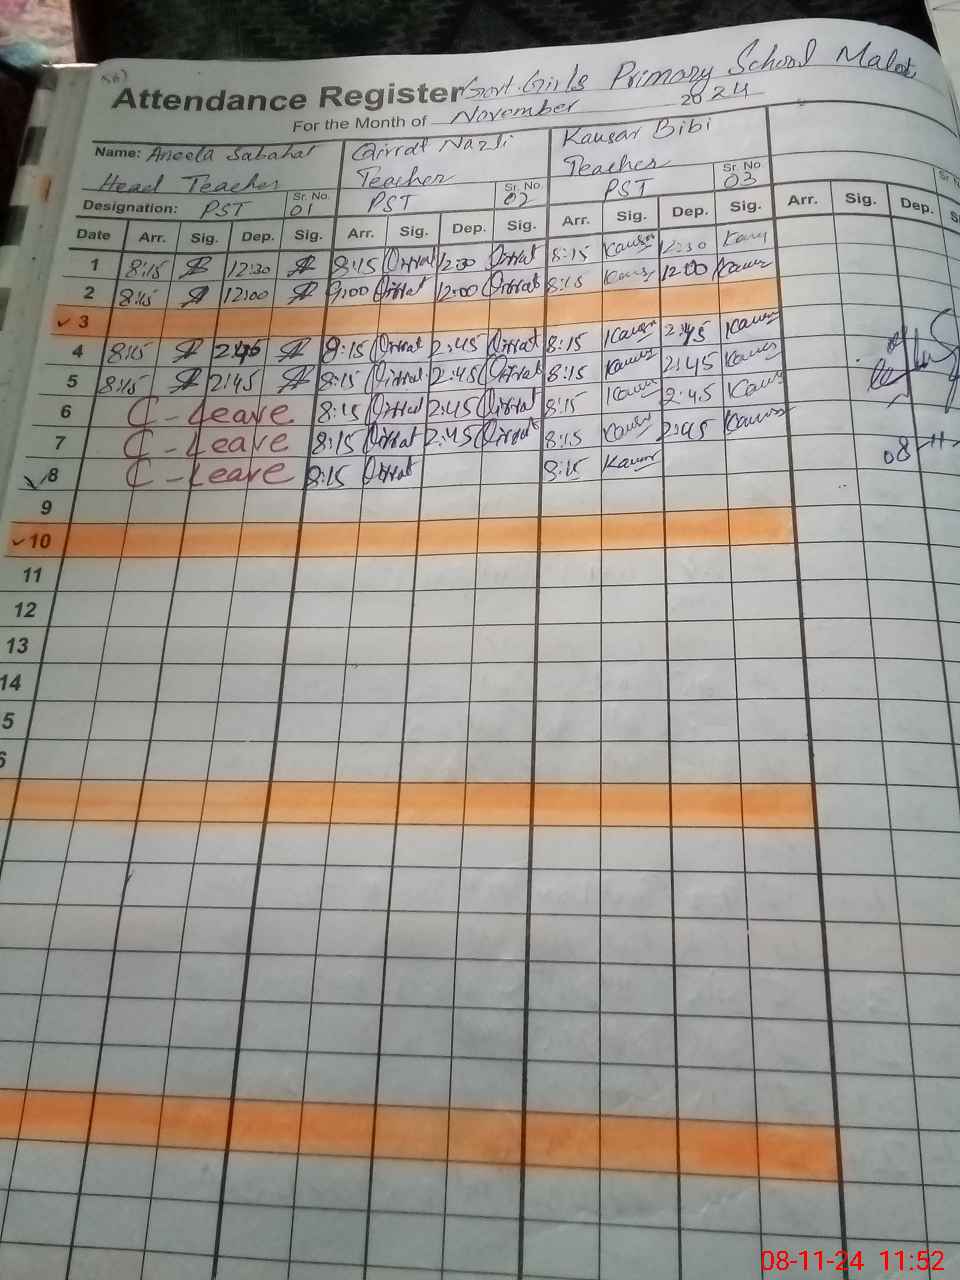 Attendance Register Govt. Girls Primary School Malot
For the Month of November 2024
Name: Aneela Sabahat Qirrat Nazli Kausar Bibi
Head Teacher Teacher Teacher
Designation: PST Sr. No. 01 PST Sr. No. 02 PST Sr. No. 03 Sr. No
Date Arr. Sig. Dep. Sig. Arr. Sig. Dep. Sig. Arr. Sig. Dep. Sig. Arr. Sig. Dep.
1 8:15 12:30 8:15 Qirrat 12:30 Qirrat 8:15 Kausar 12:30 Kausar
2 8:15 12:00 9:00 Qirrat 12:00 Qirrat 8:15 Kausar 12:00 Kausar
✓ 3
4 8:15 2:45 8:15 Qirrat 2:45 Qirrat 8:15 Kausar 2:45 Kausar
5 8:15 2:45 8:15 Qirrat 2:45 Qirrat 8:15 Kausar 2:45 Kausar
6 C-Leave 8:15 Qirrat 2:45 Qirrat 8:15 Kausar 2:45 Kausar
7 C-Leave 8:15 Qirrat 2:45 Qirrat 8:15 Kausar 2:45 Kausar
✓8 C-Leave 8:15 Qirrat 8:15 Kausar 08-11-
9
✓10
11
12
13
14
5
6
08-11-24 11:52